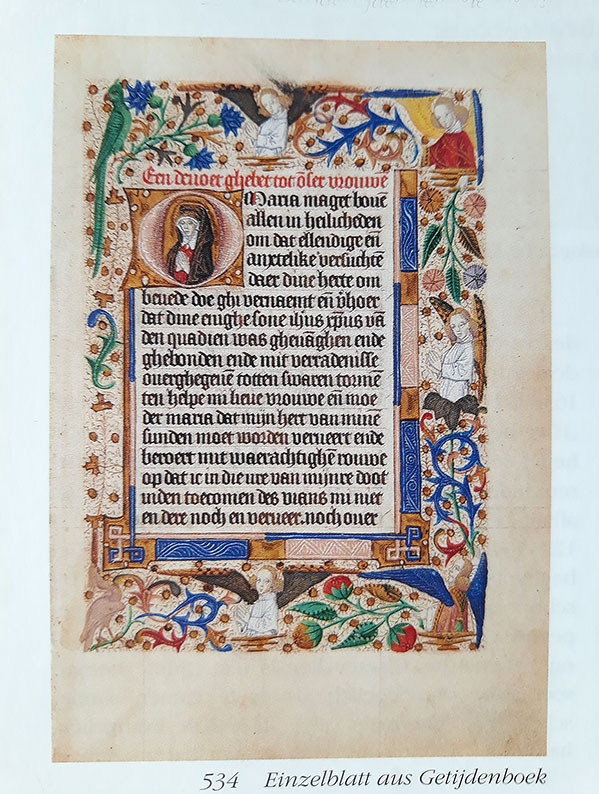 Een devoet ghebet tot ōser vrouwē
Maria maget bouē
allen in heilicheden
om dat ellendige eñ
anxtelike versuchtē
daer dine herte om
beuede doe ghi vernaemt eñ v̄hoer
dat dine enighe sone ihūs xp̄us vā
den quadien was gheuāghen ende
ghebonden ende mit verradenisse
ouerghegeuē totten swaren tormē
ten helpe mi lieue vrouwe eñ moe
der maria dat mijn hert van minē
sunden moet worden verueert ende
beroert mit waerachtighē rouwe
op dat ic in die ure van mijnre doot
inden toecomen des vians mi niet
en dere noch en verueer. noch ouer
534 Einzelblatt aus Getijdenboek